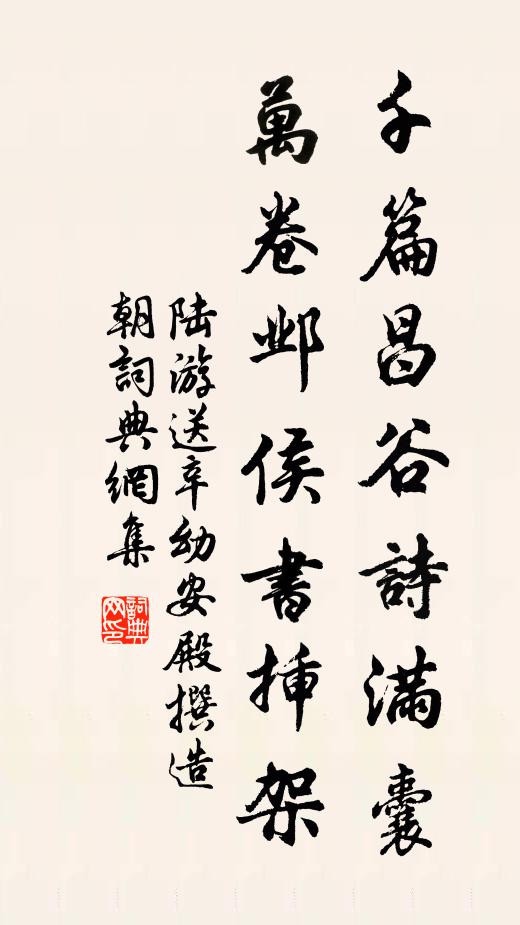 千篇昌谷詩滿囊
萬卷邺侯書揷架
陆游送辛幼安殿撰造
朝詞典網集
詞典
网印